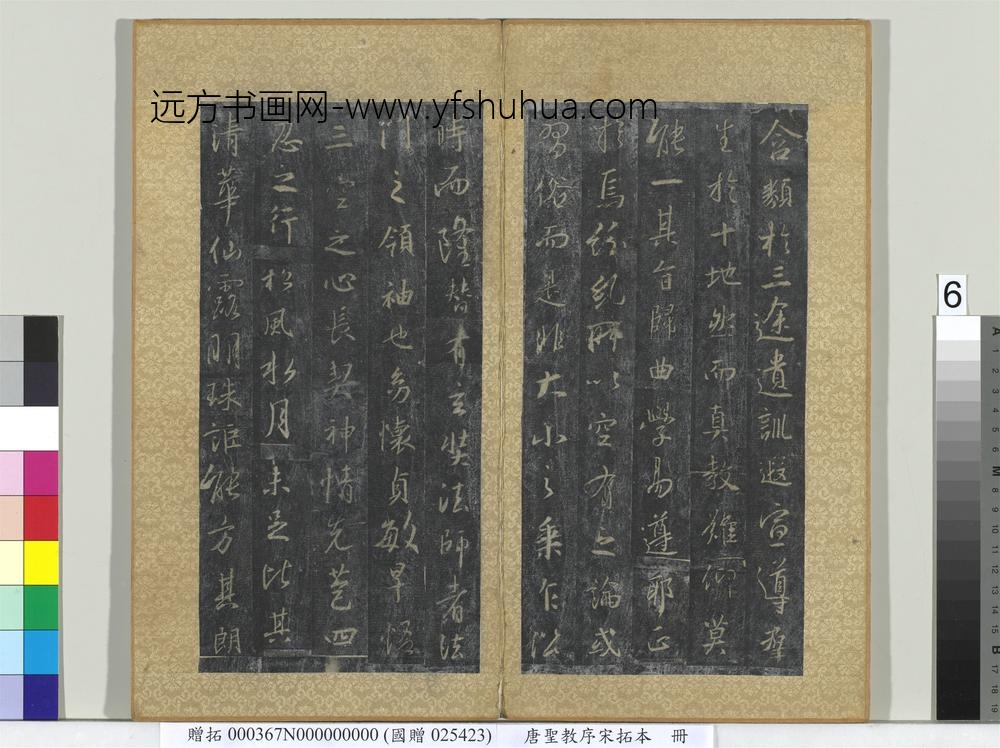 远方书画网-www.yfshuhua.com
含類於三途遺訓遐宣導群
生於十地然而真教難仰莫
能一其旨歸曲學易遵耶正
於焉紛糺所以空有之論或
習俗而是非大小之乘乍沿
時而隆替有玄奘法師者法
門之領袖也幼懷貞敏早悟
三空之心長契神情先苞四
忍之行松風水月未足比其
清華仙露明珠詎能方其朗
6
A 1 2 3 4 5 6 M 8 9 10 11 12 13 14 15 B 17 18 19
贈拓 000367N000000000 (國贈 025423)
唐聖教序宋拓本 冊